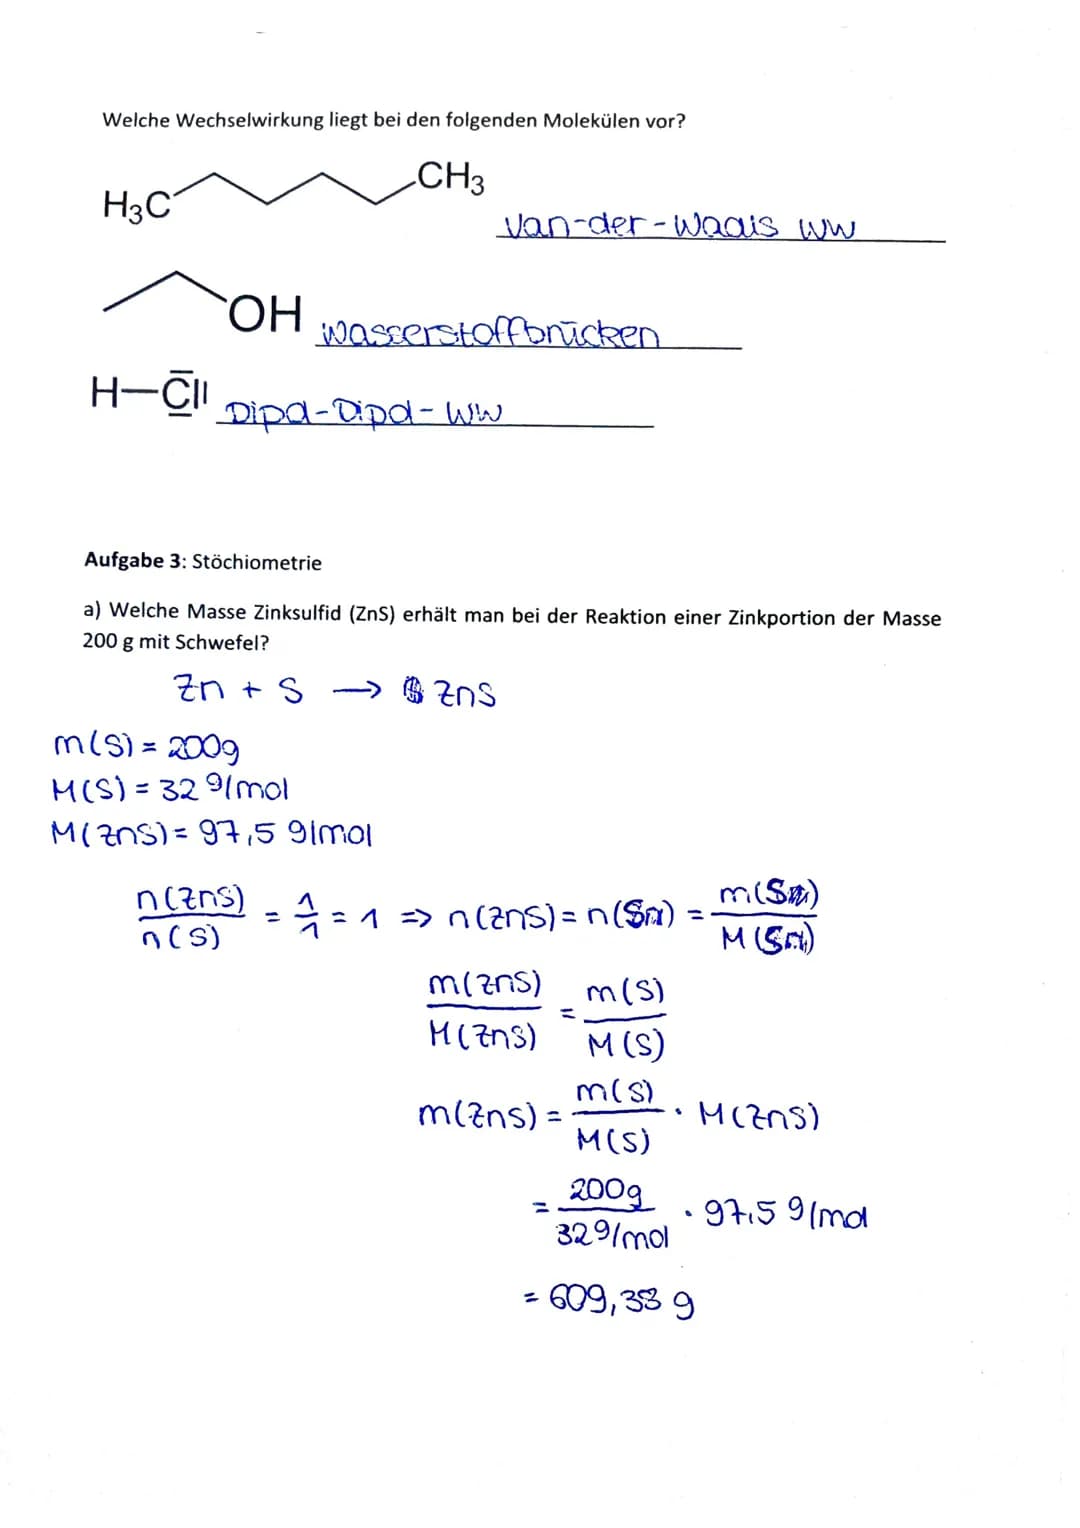 Welche Wechselwirkung liegt bei den folgenden Molekülen vor?
H3C CH3
van-der-Waals WW
OH wasserstoffbrücken
H–Cl Dipol-Dipol-WW
Aufgabe 3: Stöchiometrie
a) Welche Masse Zinksulfid (ZnS) erhält man bei der Reaktion einer Zinkportion der Masse
200 g mit Schwefel?
Zn + S → ZnS
m(S) = 200g
M(S) = 32 g/mol
M(ZnS) = 97,5 g/mol
n(ZnS)/n(S) = 1/1 = 1 => n(ZnS) = n(S) = m(S)/M(S)
m(ZnS)/M(ZnS) = m(S)/M(S)
m(ZnS) = m(S)/M(S) · M(ZnS)
= 200g/32g/mol · 97,5 g/mol
= 609,38 g